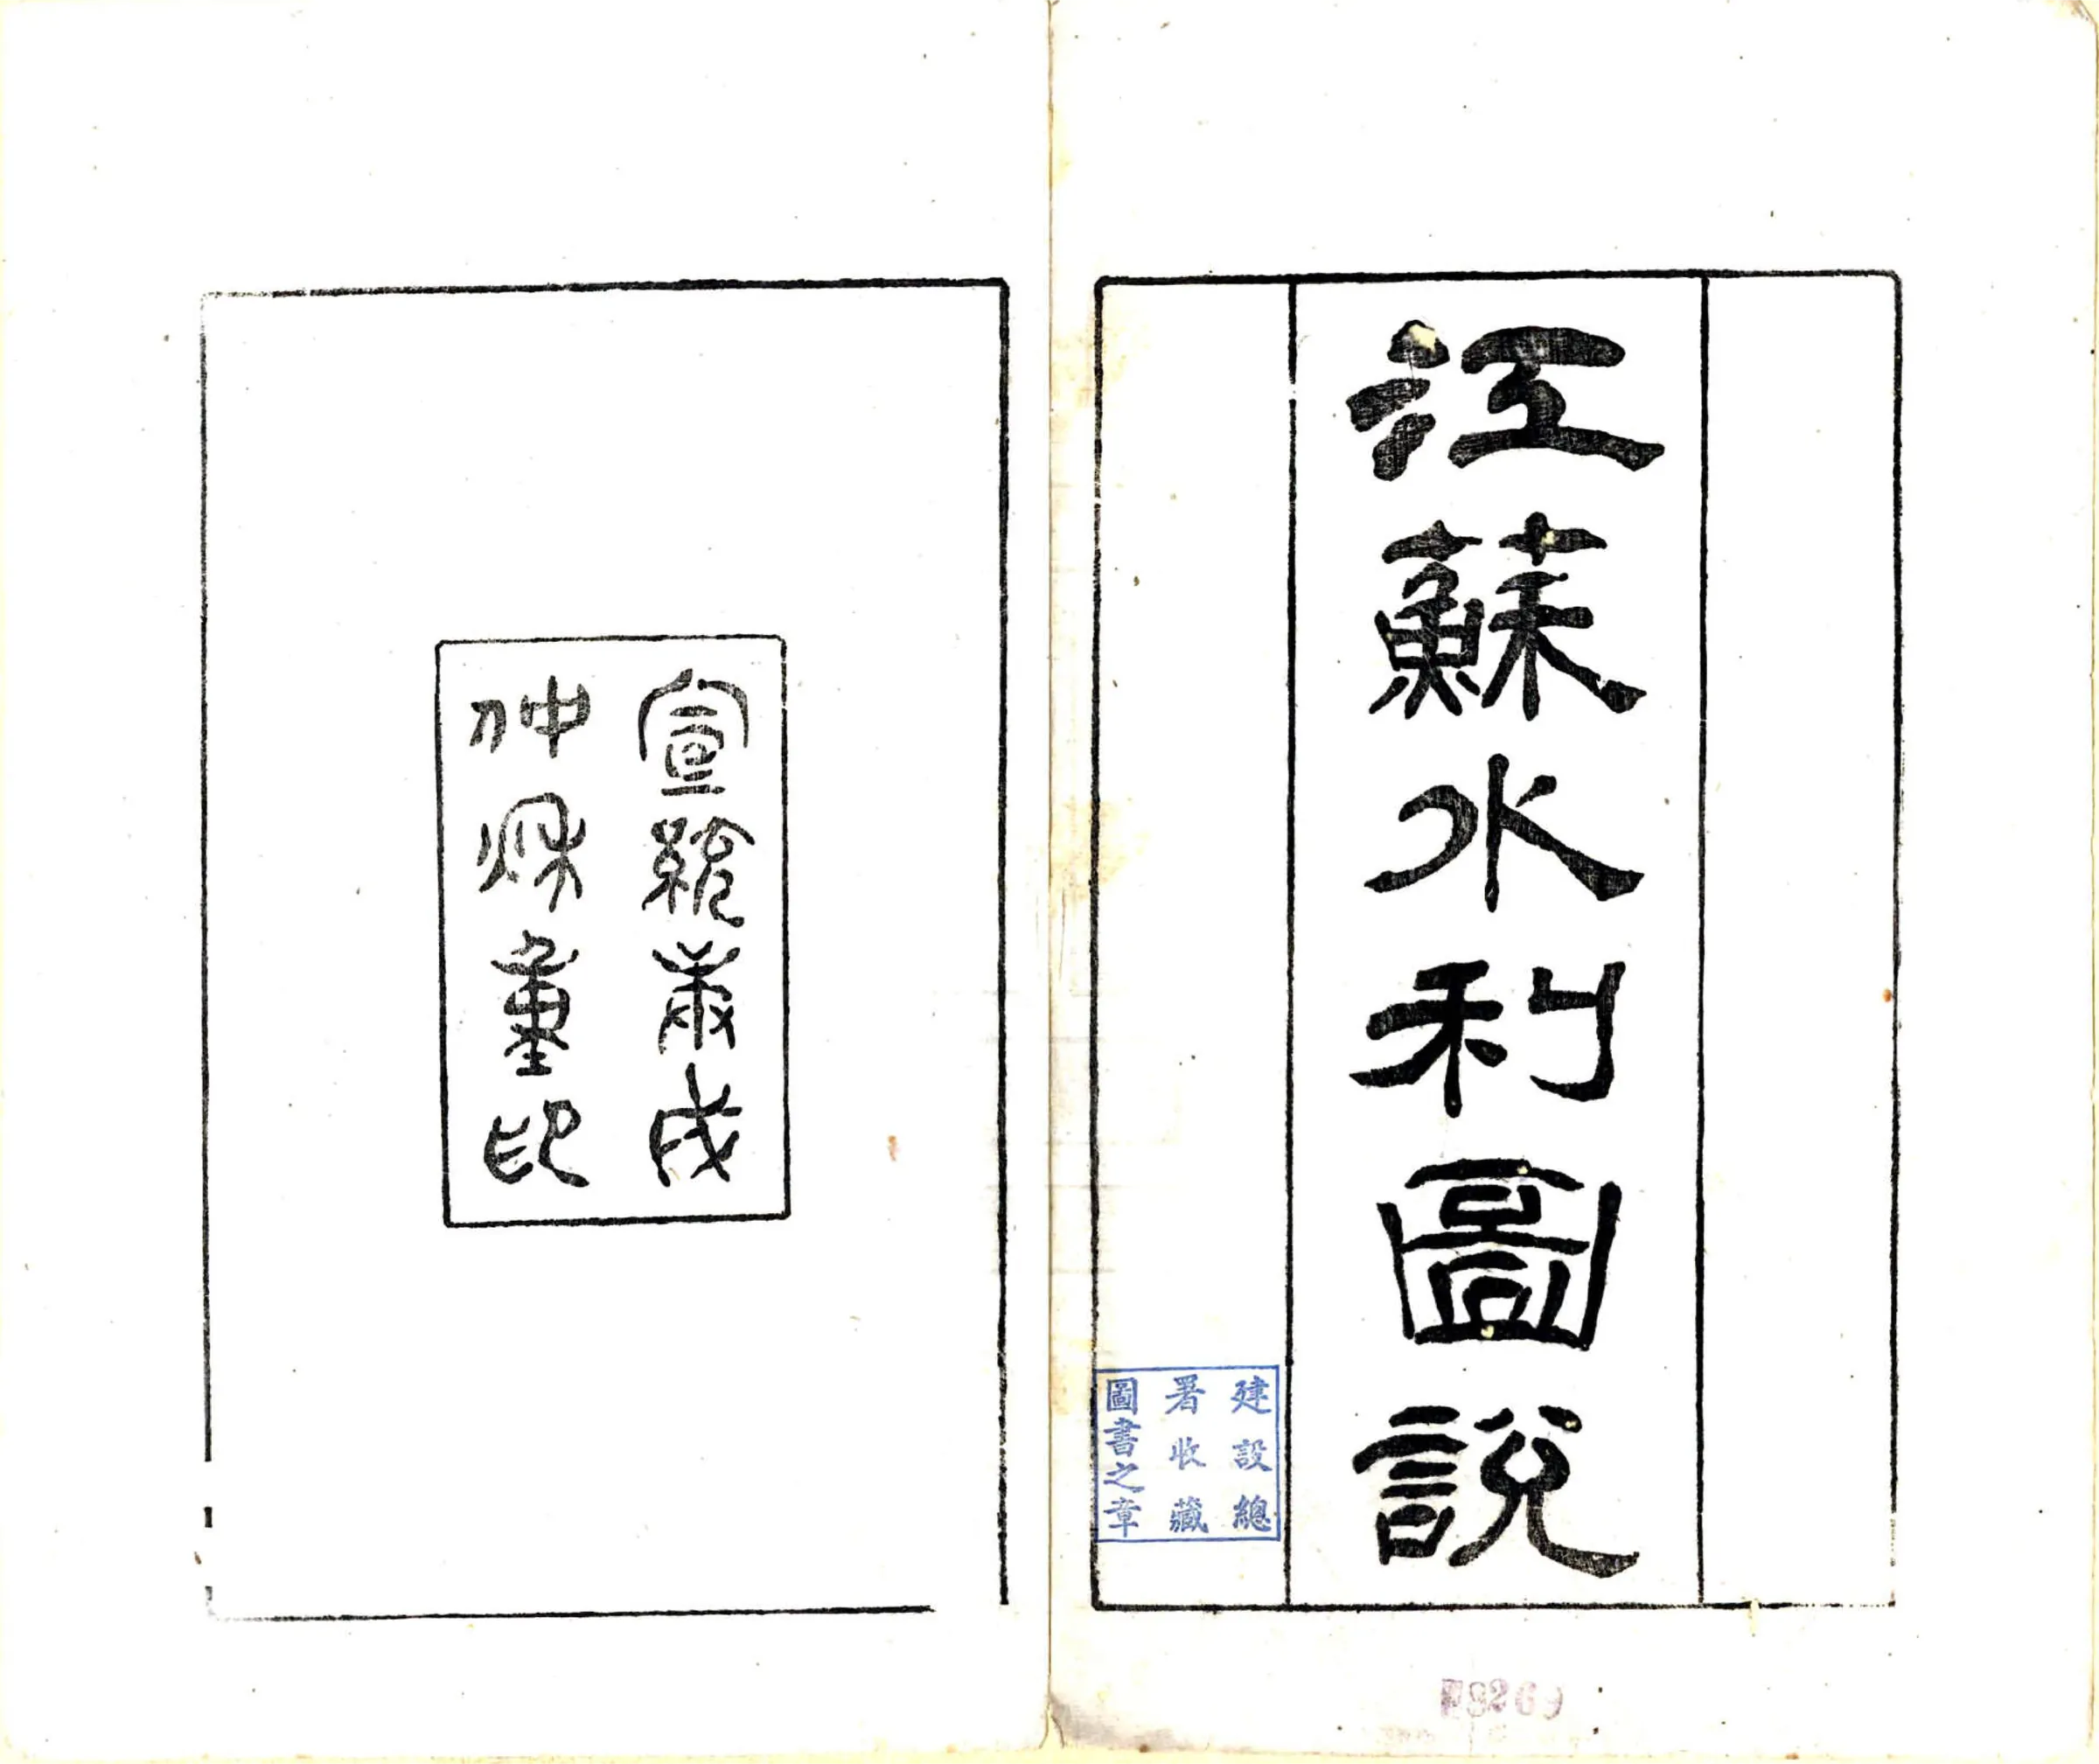 江蘇水利圖說
建設總
署收藏
圖書之章
宣統庚戌
仲秌重印